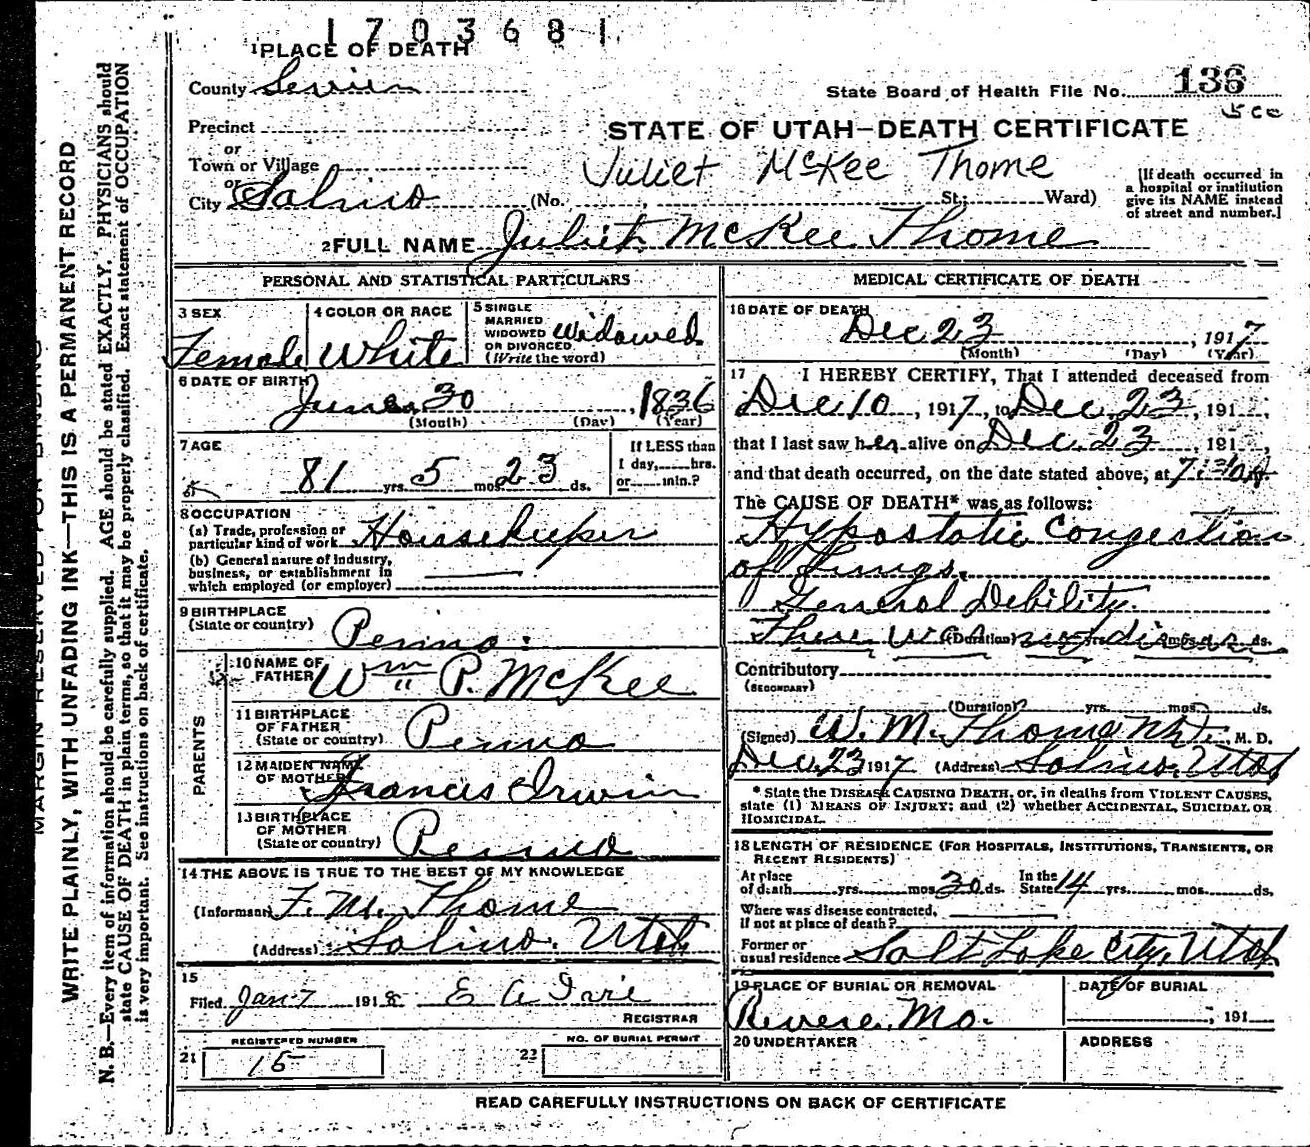 1703681
1 PLACE OF DEATH
County Sevier
State Board of Health File No. 136
Precinct
or
Town or Village
or
City Salina
STATE OF UTAH—DEATH CERTIFICATE
Juliet McKee Thome
(No. , St.; Ward)
[If death occurred in
a hospital or institution
give its NAME instead
of street and number.]
2 FULL NAME Juliet McKee Thome
PERSONAL AND STATISTICAL PARTICULARS
3 SEX
Female
4 COLOR OR RACE
White
5 SINGLE
MARRIED
WIDOWED
OR DIVORCED
(Write the word)
Widowed
6 DATE OF BIRTH
June 30, 1836
(Month) (Day) (Year)
7 AGE
81 yrs. 5 mos. 23 ds.
If LESS than
1 day, hrs.
or min.?
8 OCCUPATION
(a) Trade, profession or
particular kind of work Housekeeper
(b) General nature of industry,
business, or establishment in
which employed (or employer)
9 BIRTHPLACE
(State or country) Penna.
PARENTS
10 NAME OF
FATHER Wm P. McKee
11 BIRTHPLACE
OF FATHER
(State or country) Penna
12 MAIDEN NAME
OF MOTHER Francis Irwin
13 BIRTHPLACE
OF MOTHER
(State or country) Penna
14 THE ABOVE IS TRUE TO THE BEST OF MY KNOWLEDGE
(Informant) F. M. Thome
(Address) Salina, Utah
15
Filed Jan 7 1918
REGISTRAR
21 REGISTERED NUMBER
15
22 NO. OF BURIAL PERMIT
MEDICAL CERTIFICATE OF DEATH
16 DATE OF DEATH
Dec 23, 1917
(Month) (Day) (Year)
17 I HEREBY CERTIFY, That I attended deceased from
Dec 10, 1917, to Dec. 23, 191
that I last saw her alive on Dec. 23, 191
and that death occurred, on the date stated above, at
The CAUSE OF DEATH* was as follows:
Hypostatic Congestion
of Lungs.
General Debility.
There was not disease
(Duration) yrs. mos. ds.
Contributory
(SECONDARY)
(Duration) yrs. mos. ds.
(Signed) W. M. Thome M.D. M. D.
Dec. 23 1917 (Address) Salina, Utah
* State the DISEASE CAUSING DEATH, or, in deaths from VIOLENT CAUSES,
state (1) MEANS OF INJURY; and (2) whether ACCIDENTAL, SUICIDAL OR
HOMICIDAL.
18 LENGTH OF RESIDENCE (FOR HOSPITALS, INSTITUTIONS, TRANSIENTS, OR
RECENT RESIDENTS)
At place
of death yrs. mos. 30 ds.
In the
State 14 yrs. mos. ds.
Where was disease contracted,
If not at place of death?
Former or
usual residence Salt Lake City, Utah
19 PLACE OF BURIAL OR REMOVAL
Revere, Mo.
DATE OF BURIAL
, 191
20 UNDERTAKER
ADDRESS
READ CAREFULLY INSTRUCTIONS ON BACK OF CERTIFICATE
MARGIN RESERVED FOR BINDING
WRITE PLAINLY, WITH UNFADING INK—THIS IS A PERMANENT RECORD
N. B.—Every item of information should be carefully supplied. AGE should be stated EXACTLY. PHYSICIANS should
state CAUSE OF DEATH in plain terms, so that it may be properly classified. Exact statement of OCCUPATION
is very important. See instructions on back of certificate.